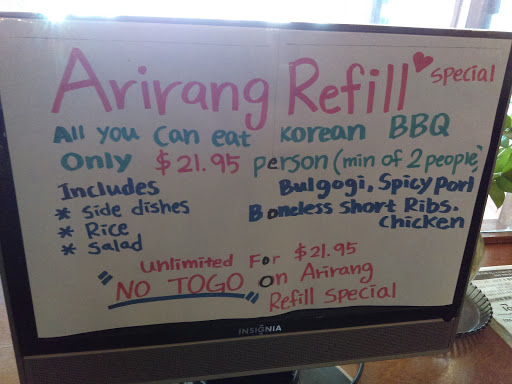 Arirang Refill special
All you can eat Korean BBQ
Only $21.95 person (min of 2 people)
Includes
* Side dishes
* Rice
* Salad
Bulgogi, Spicy Pork
Boneless short Ribs.
Chicken
Unlimited For $21.95
"NO TOGO" On Arirang
Refill Special
INSIGNIA